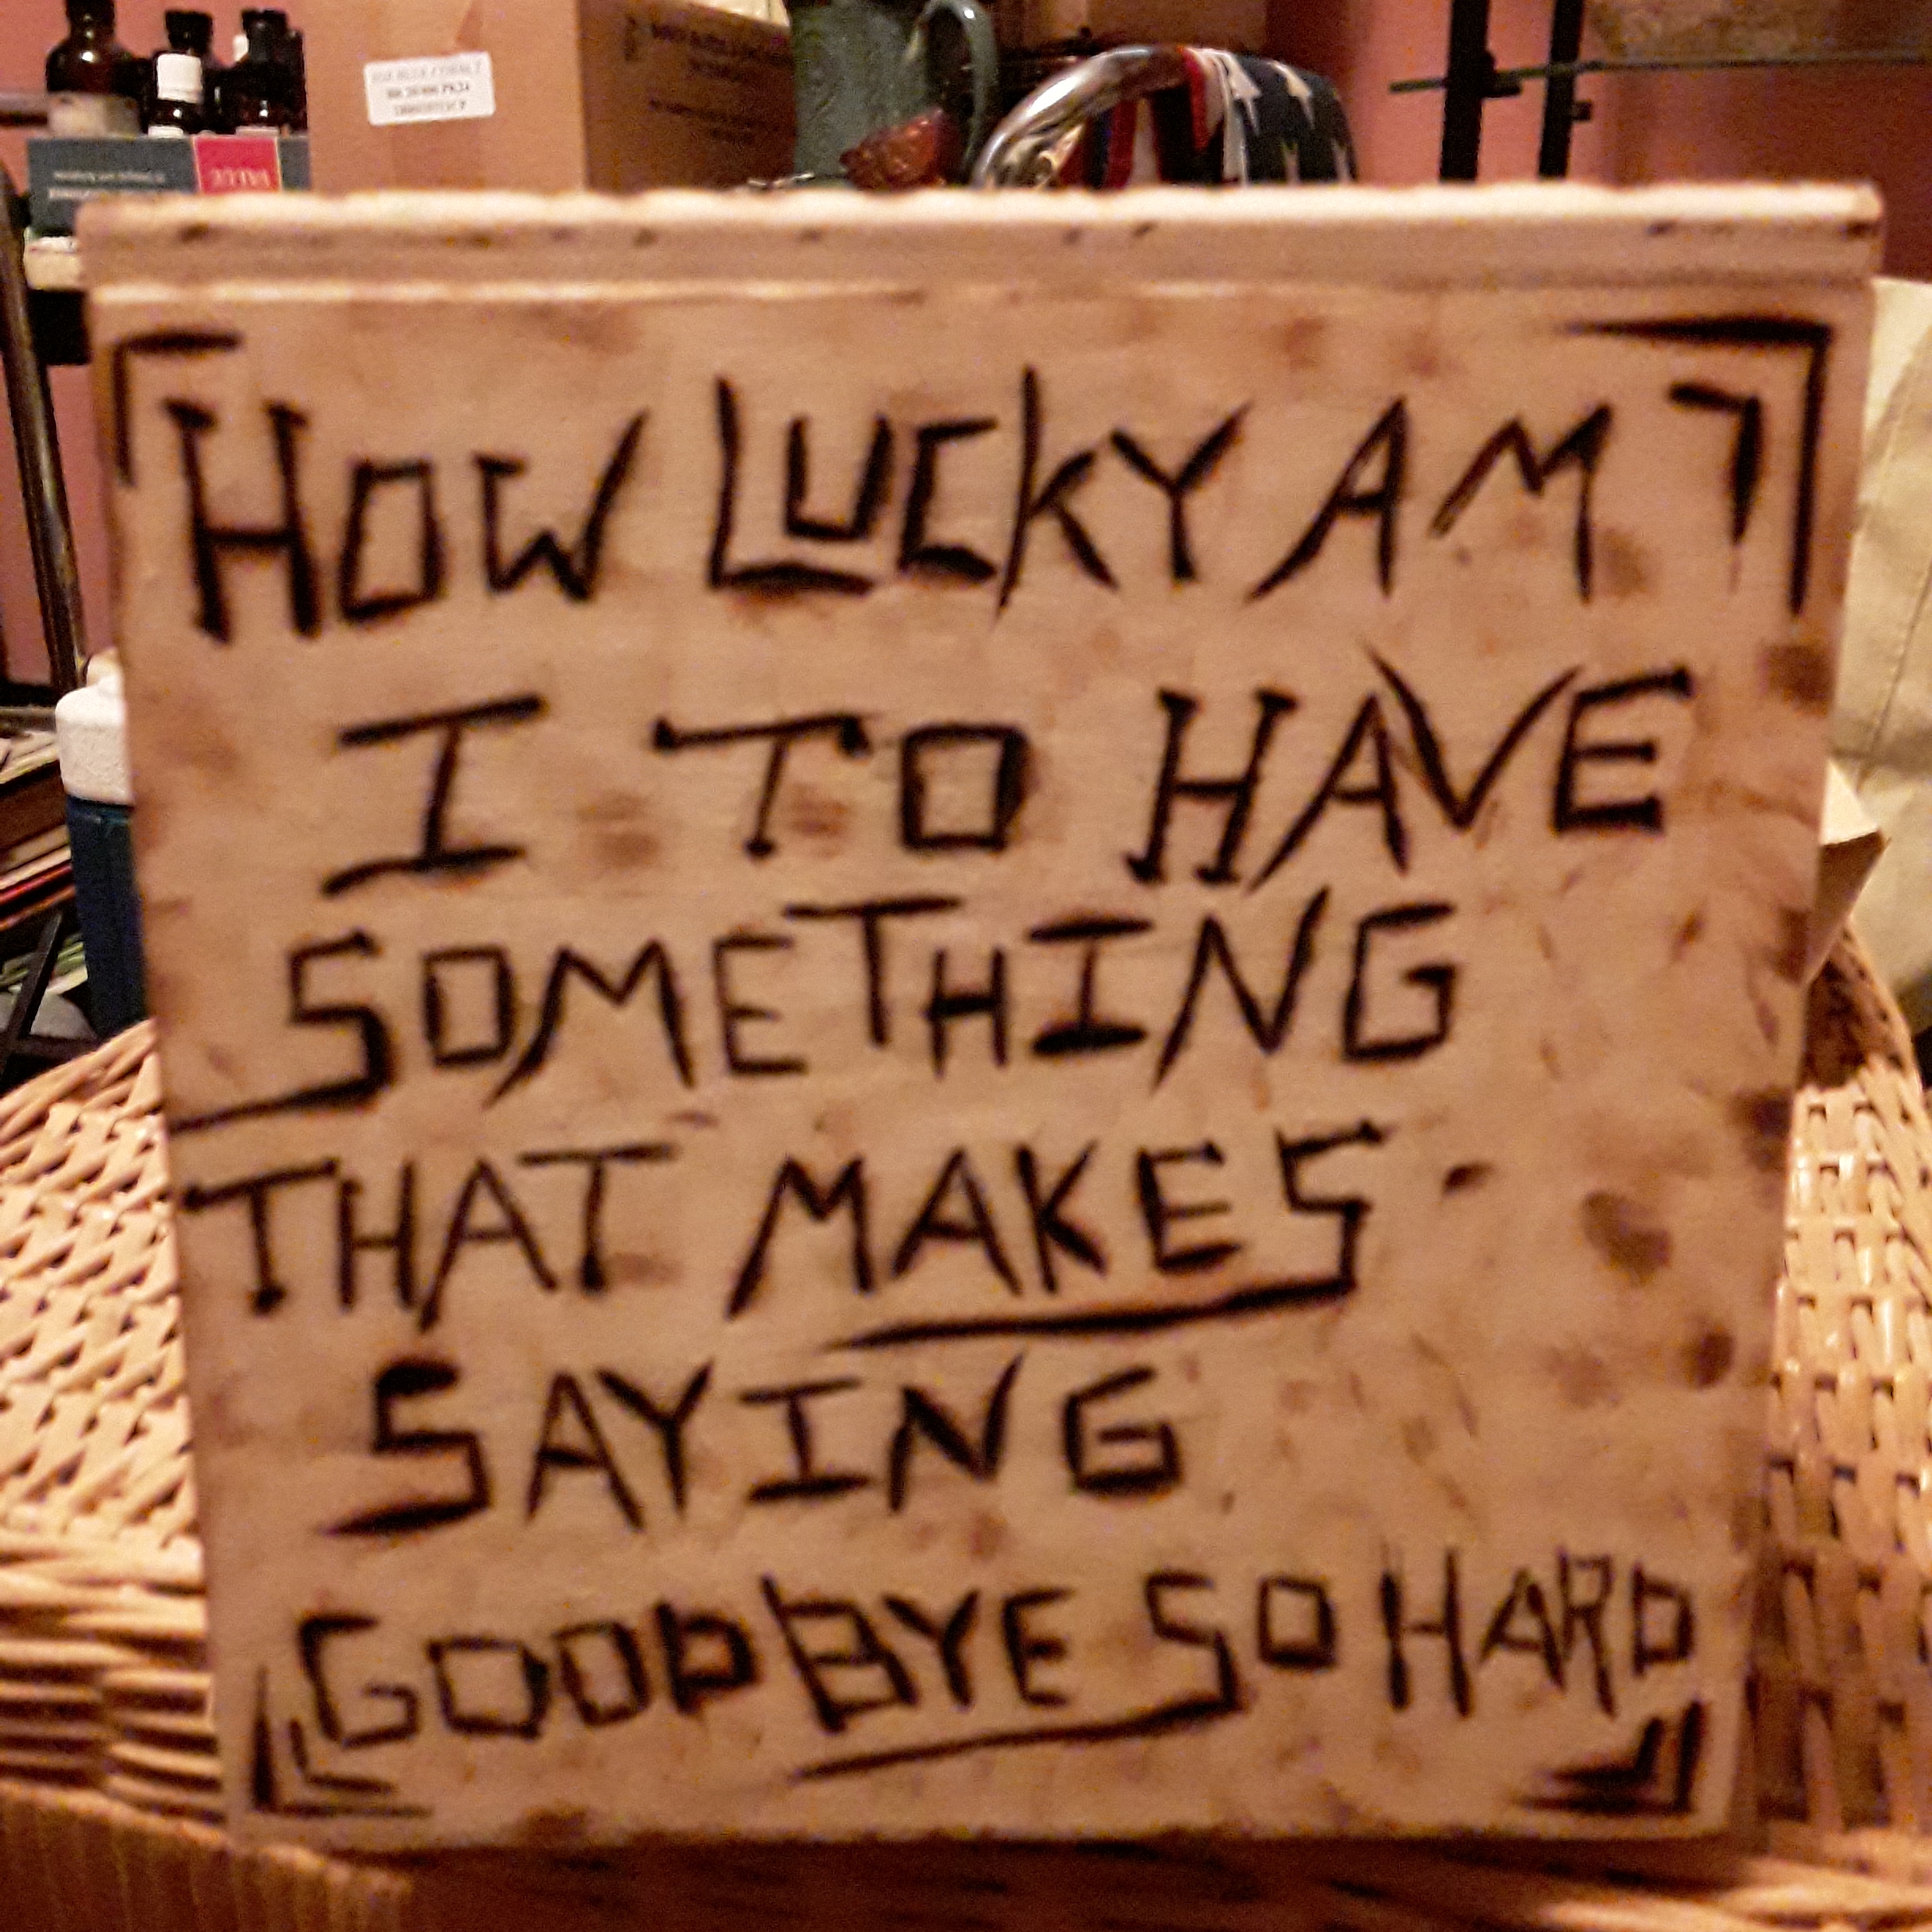 HOW LUCKY AM
I TO HAVE
SOMETHING
THAT MAKES
SAYING
GOODBYE SO HARD